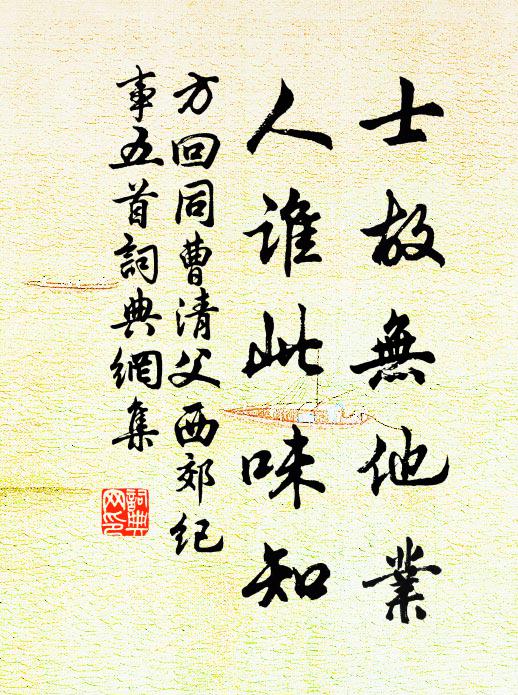 士故無他業
人誰此味知
方回同曹清父西郊紀
事五首詞典網集
詞典
网印